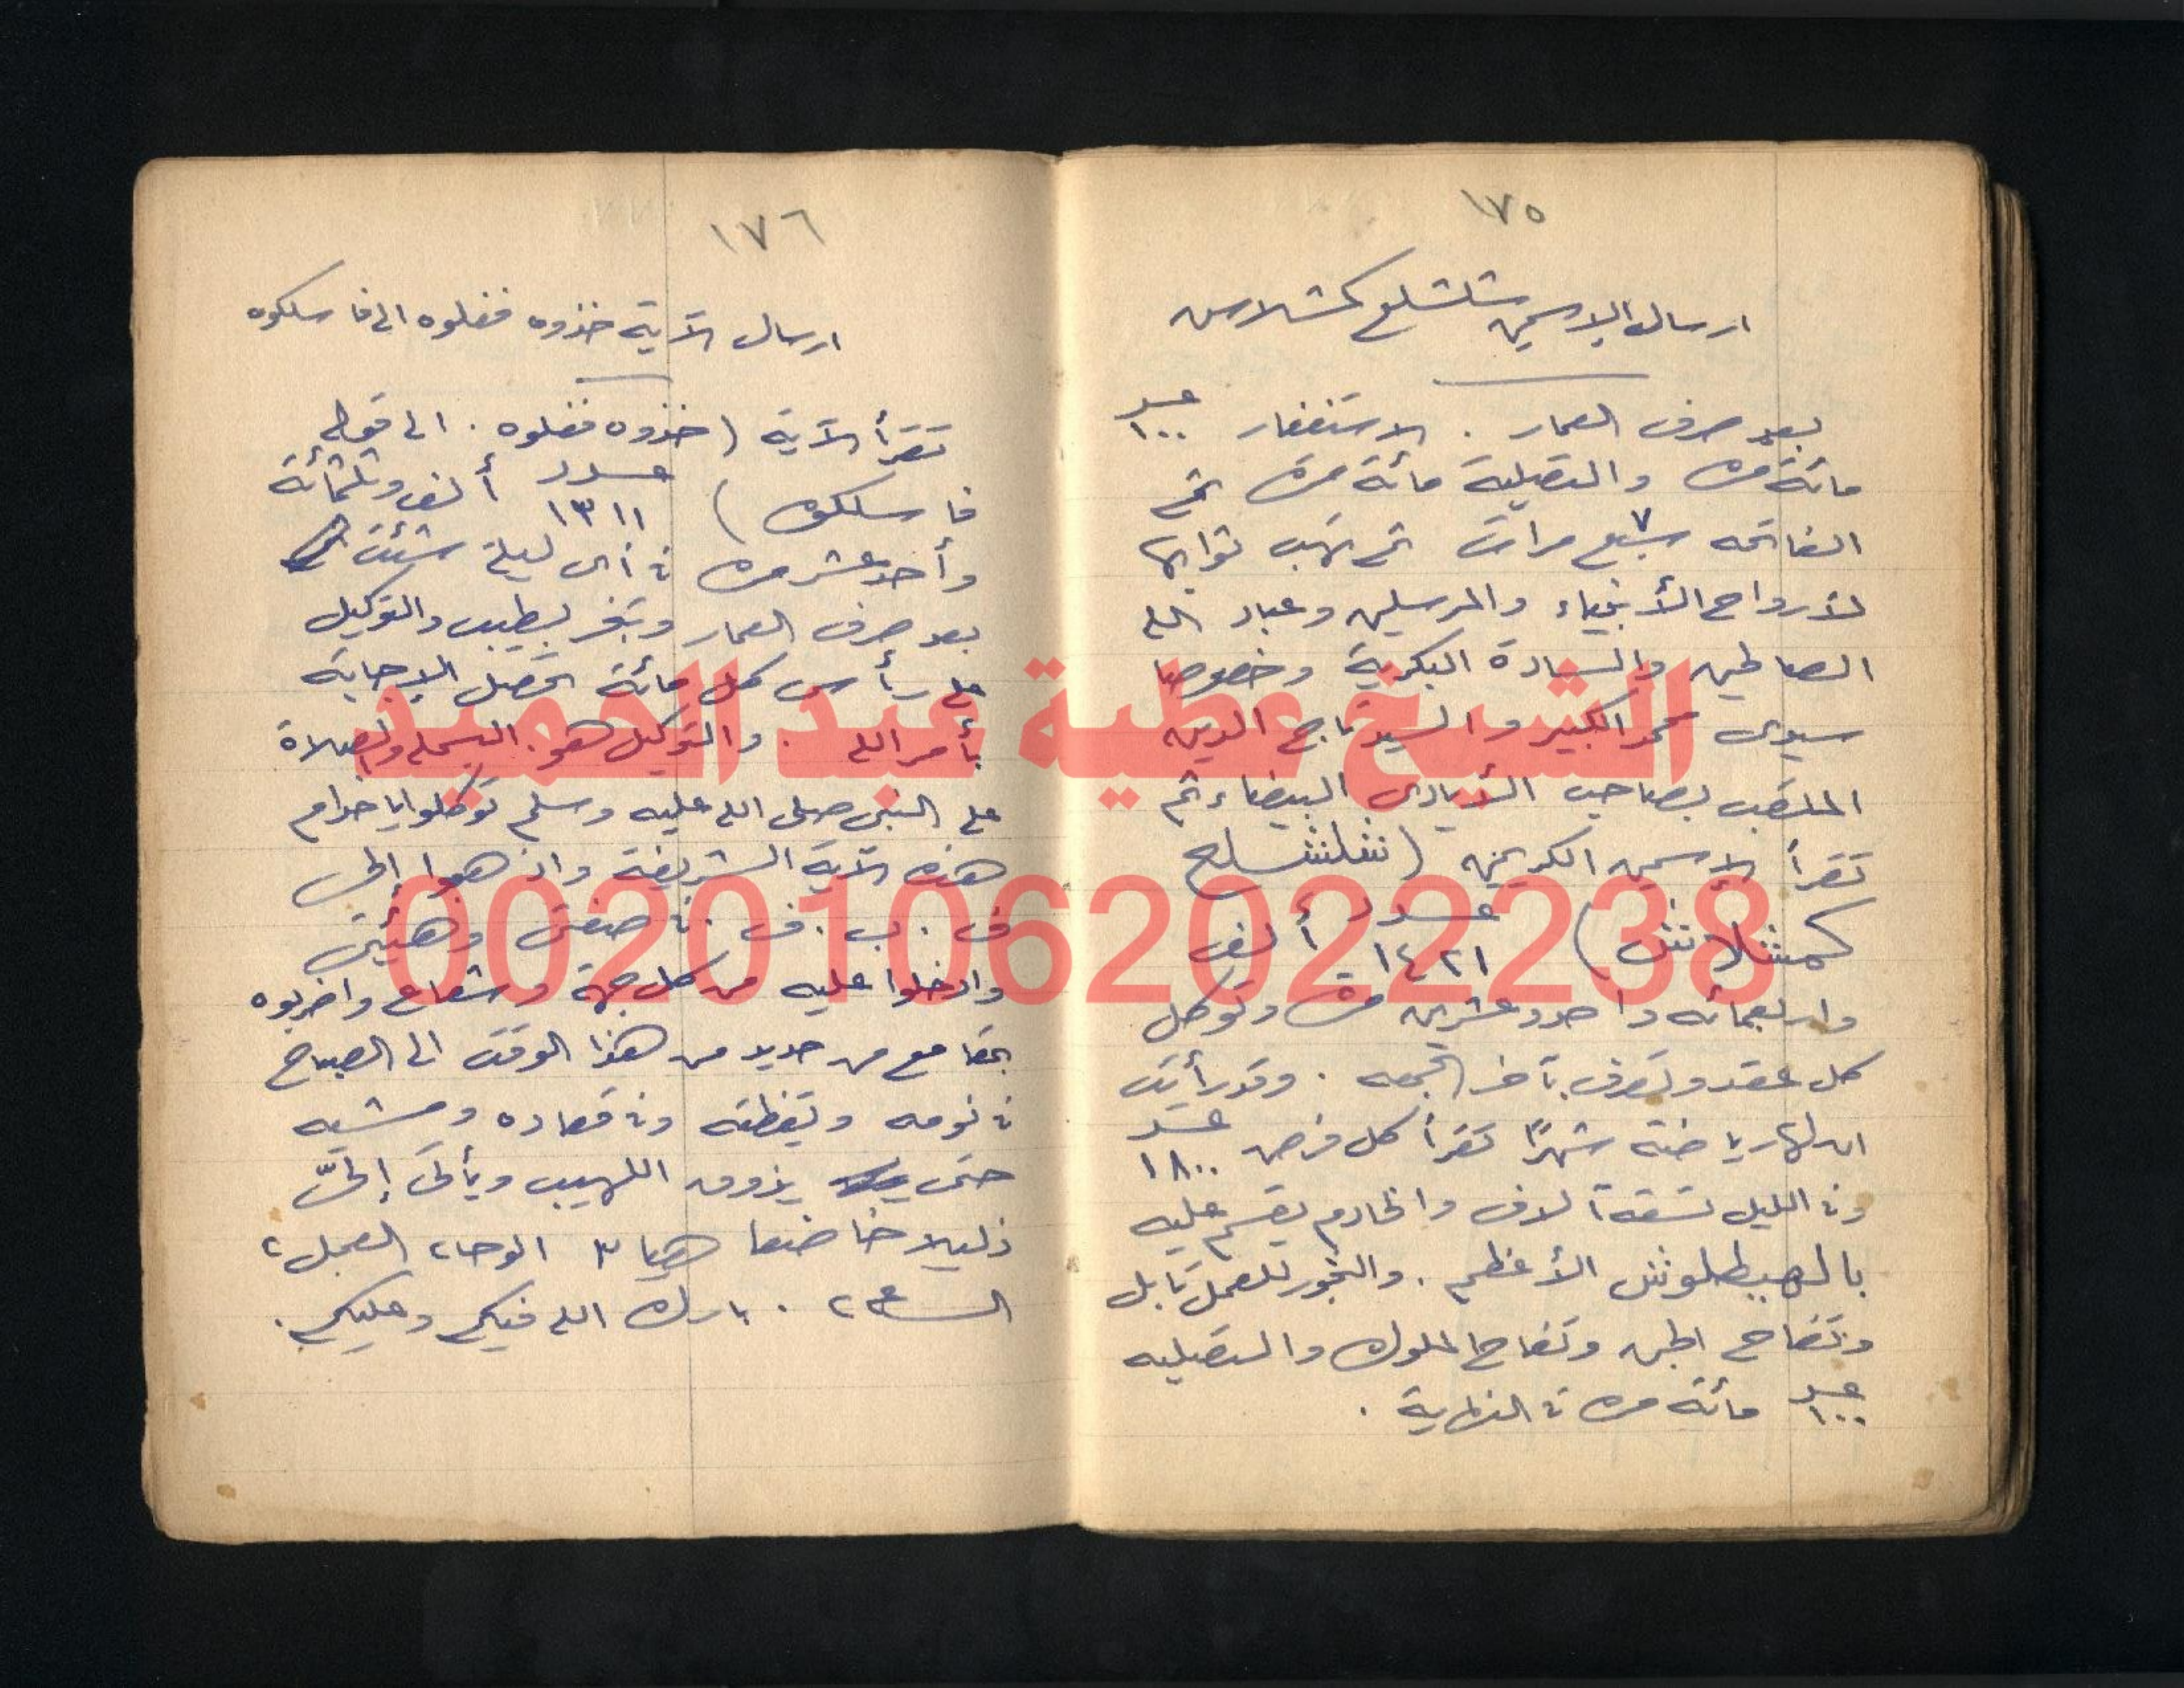 ١٧٥
ارسال الإسمين شلشلع كمشلاس
بعد صرف العمار . الاستغفار عدد ١٠٠
مائة مرة والتصلية مائة مرة ثم
الفاتحه سبع ٧ مرات ثم تهب ثوابها
لأرواح الأنبياء والمرسلين وعباد الله
الصالحين والسادة البكرية وخصوصا
سيدى محمد الكبير والسيد تاج الدين
الملقب بصاحب الأيادى البيضاء ثم
تقرأ الإسمين الكريمين (شلشلع
كمشلانش) عدد ١٤٢١ ألف
واربعمائه واحد وعشرين مرة وتوكل
كل عقد وتصرف بآخر الجمعه . وقد رأيت
ان لها رياضة شهرًا تقرأ كل فرض عدد ١٨٠٠
وفى الليل تسعة آلاف والخادم يقسم عليه
بالهيطلوش الأعظم . والبخور للعمل تابل
وتفاح الجن وتفاح الملوك والتصليه
عدد ١٠٠ مائة مرة فى النهاية .
١٧٦
ارسال الآية خذوه فغلوه الى فاسلكوه
تقرأ الآية (خذوه فغلوه . الى قوله
فاسلكوه) عدد ١٣١١ ألف وثلثمائة
وأحد عشر مرة فى أى ليلة شئت
بعد صرف العمار وتبخر بطيب والتوكيل
على رأس كل مائة تحصل الإجابة
بأمر الله . والتوكيل هو . البسملة والصلاة
على النبى صلى الله عليه وسلم توكلوا يا خدام
هذه الآية الشريفة واذهبوا إلى
ف . ب . ف . فى صفتى وهيئتى
وادخلوا عليه من كل جهة وشعاع واضربوه
بمقامع من حديد من هذا الوقت الى الصباح
فى نومه ويقظته وفى قعاده ومشيه
حتى يذوق اللهيب ويأتى إلىّ
ذليلا خاضعا هيا ٣ الوحا ٢ العجل ٢
الساعة ٢ . بارك الله فيكم وعليكم .
الشيخ عطية عبد الحميد
00201062022238